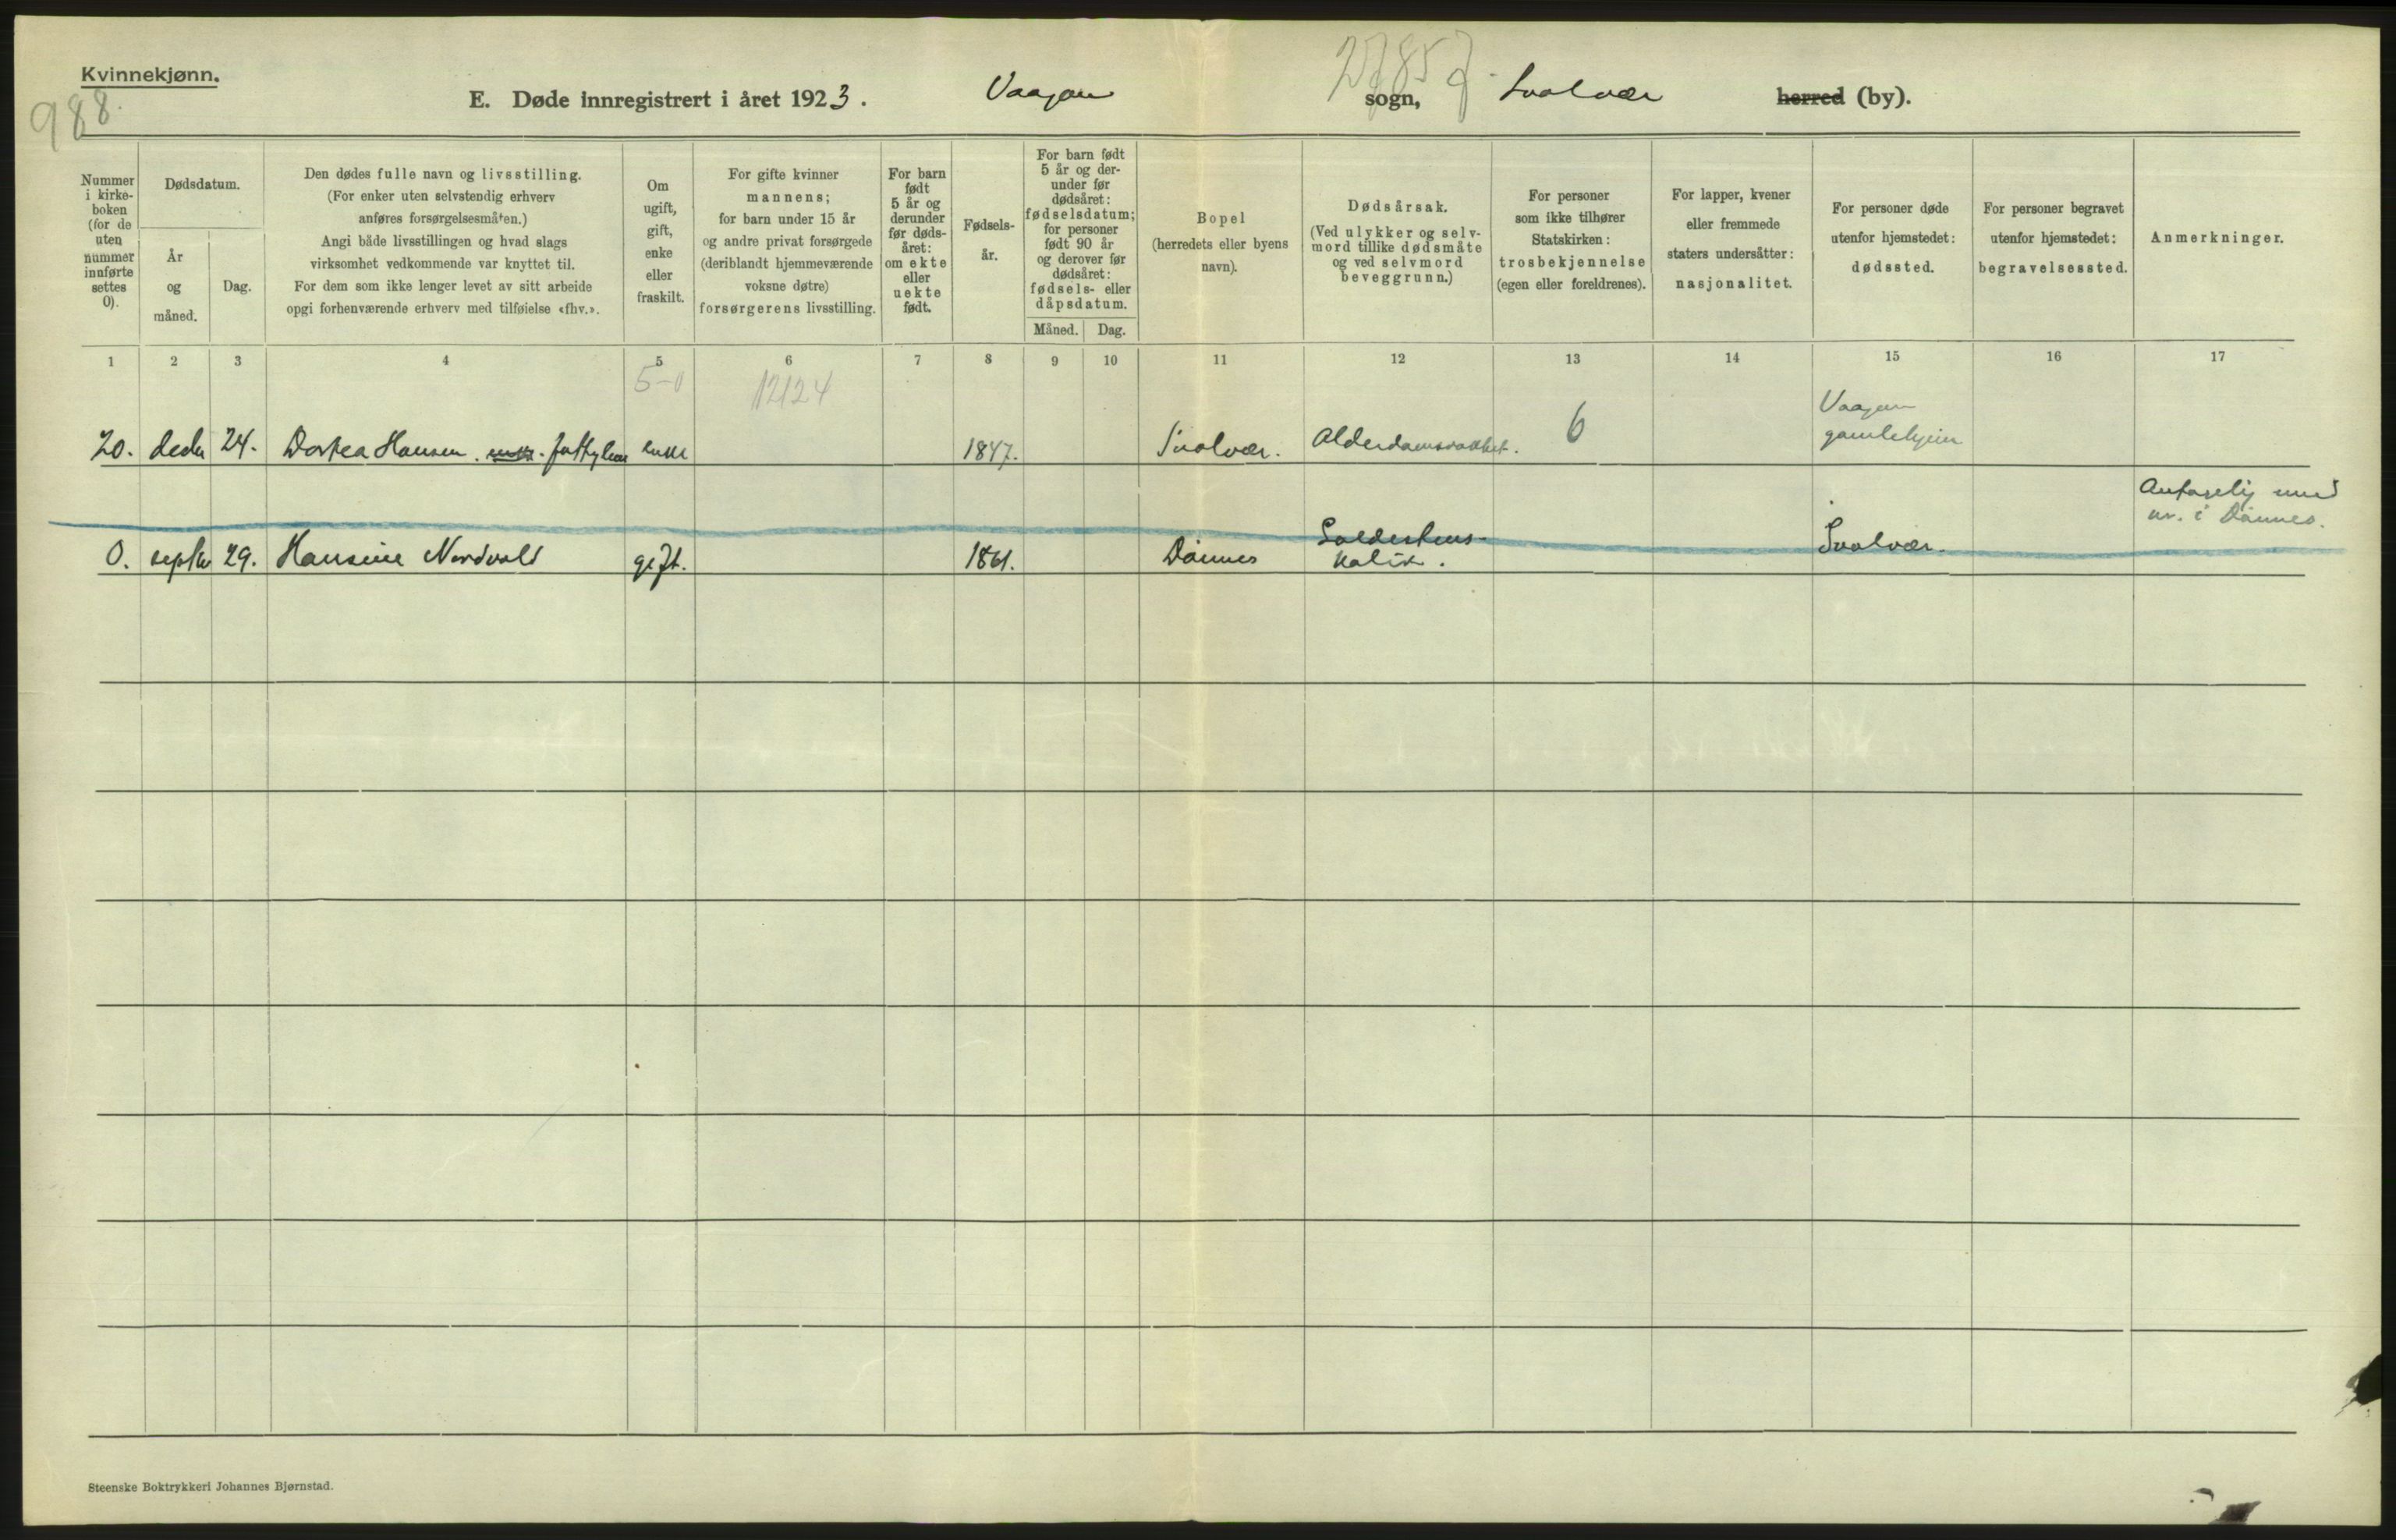 Kvinnekjønn.
988.
E. Døde innregistrert i året 1923. Vaagan sogn, Svolvær herred (by).
Nummer i kirke-boken (for de uten nummer innførte settes 0).
Dødsdatum.
År og måned.
Dag.
Den dødes fulle navn og livsstilling.
(For enker uten selvstendig erhverv
anføres forsørgelsesmåten.)
Angi både livsstillingen og hvad slags
virksomhet vedkommende var knyttet til.
For dem som ikke lenger levet av sitt arbeide
opgi forhenværende erhverv med tilføielse «fhv.».
Om
ugift,
gift,
enke
eller
fraskilt.
For gifte kvinner
mannens;
for barn under 15 år
og andre privat forsørgede
(deriblandt hjemmeværende
voksne døtre)
forsørgerens livsstilling.
For barn
født
5 år og
derunder
før døds-
året:
om ekte
eller
uekte
født.
Fødsels-
år.
For barn født
5 år og der-
under før
dødsåret:
fødselsdatum;
for personer
født 90 år
og derover før
dødsåret:
fødsels- eller
dåpsdatum.
Måned. Dag.
Bopel
(herredets eller byens
navn).
Dødsårsak.
(Ved ulykker og selv-
mord tillike dødsmåte
og ved selvmord
beveggrunn.)
For personer
som ikke tilhører
Statskirken:
trosbekjennelse
(egen eller foreldrenes).
For lapper, kvener
eller fremmede
staters undersåtter:
nasjonalitet.
For personer døde
utenfor hjemstedet:
dødssted.
For personer begravet
utenfor hjemstedet:
begravelsessted.
Anmerkninger.
1 2 3 4 5 6 7 8 9 10 11 12 13 14 15 16 17
5-0 12124
20. decbr 24. Dortea Hansen enke 1847. Svolvær. Alderdomssvakhet. 6 Vaagan
gamlehjem
0. septbr 29. Hansine Nordvold gift. 1861. Dønnes Galdestens-
kolik. Svolvær. Antagelig med
nr. i Dønnes.
Steenske Boktrykkeri Johannes Bjørnstad.